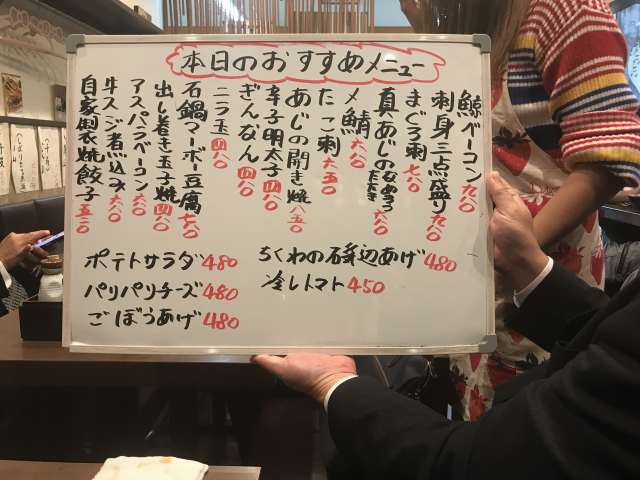 本日のおすすめメニュー
鯨ベーコン 九八〇
刺身三点盛り 九八〇
まぐろ刺 七八〇
真あじのなめろうたたき 六八〇
〆鯖 六八〇
たこ刺 六五〇
あじの開き焼 八五〇
辛子明太子 四八〇
ぎんなん 四八〇
ニラ玉 四八〇
石鍋マーボー豆腐 七八〇
出し巻き玉子焼 四八〇
アスパラベーコン 六八〇
牛スジ煮込み 六八〇
自家製焼餃子 五三〇
ポテトサラダ 480
パリパリチーズ 480
ごぼうあげ 480
ちくわの石辺あげ 480
冷しトマト 450